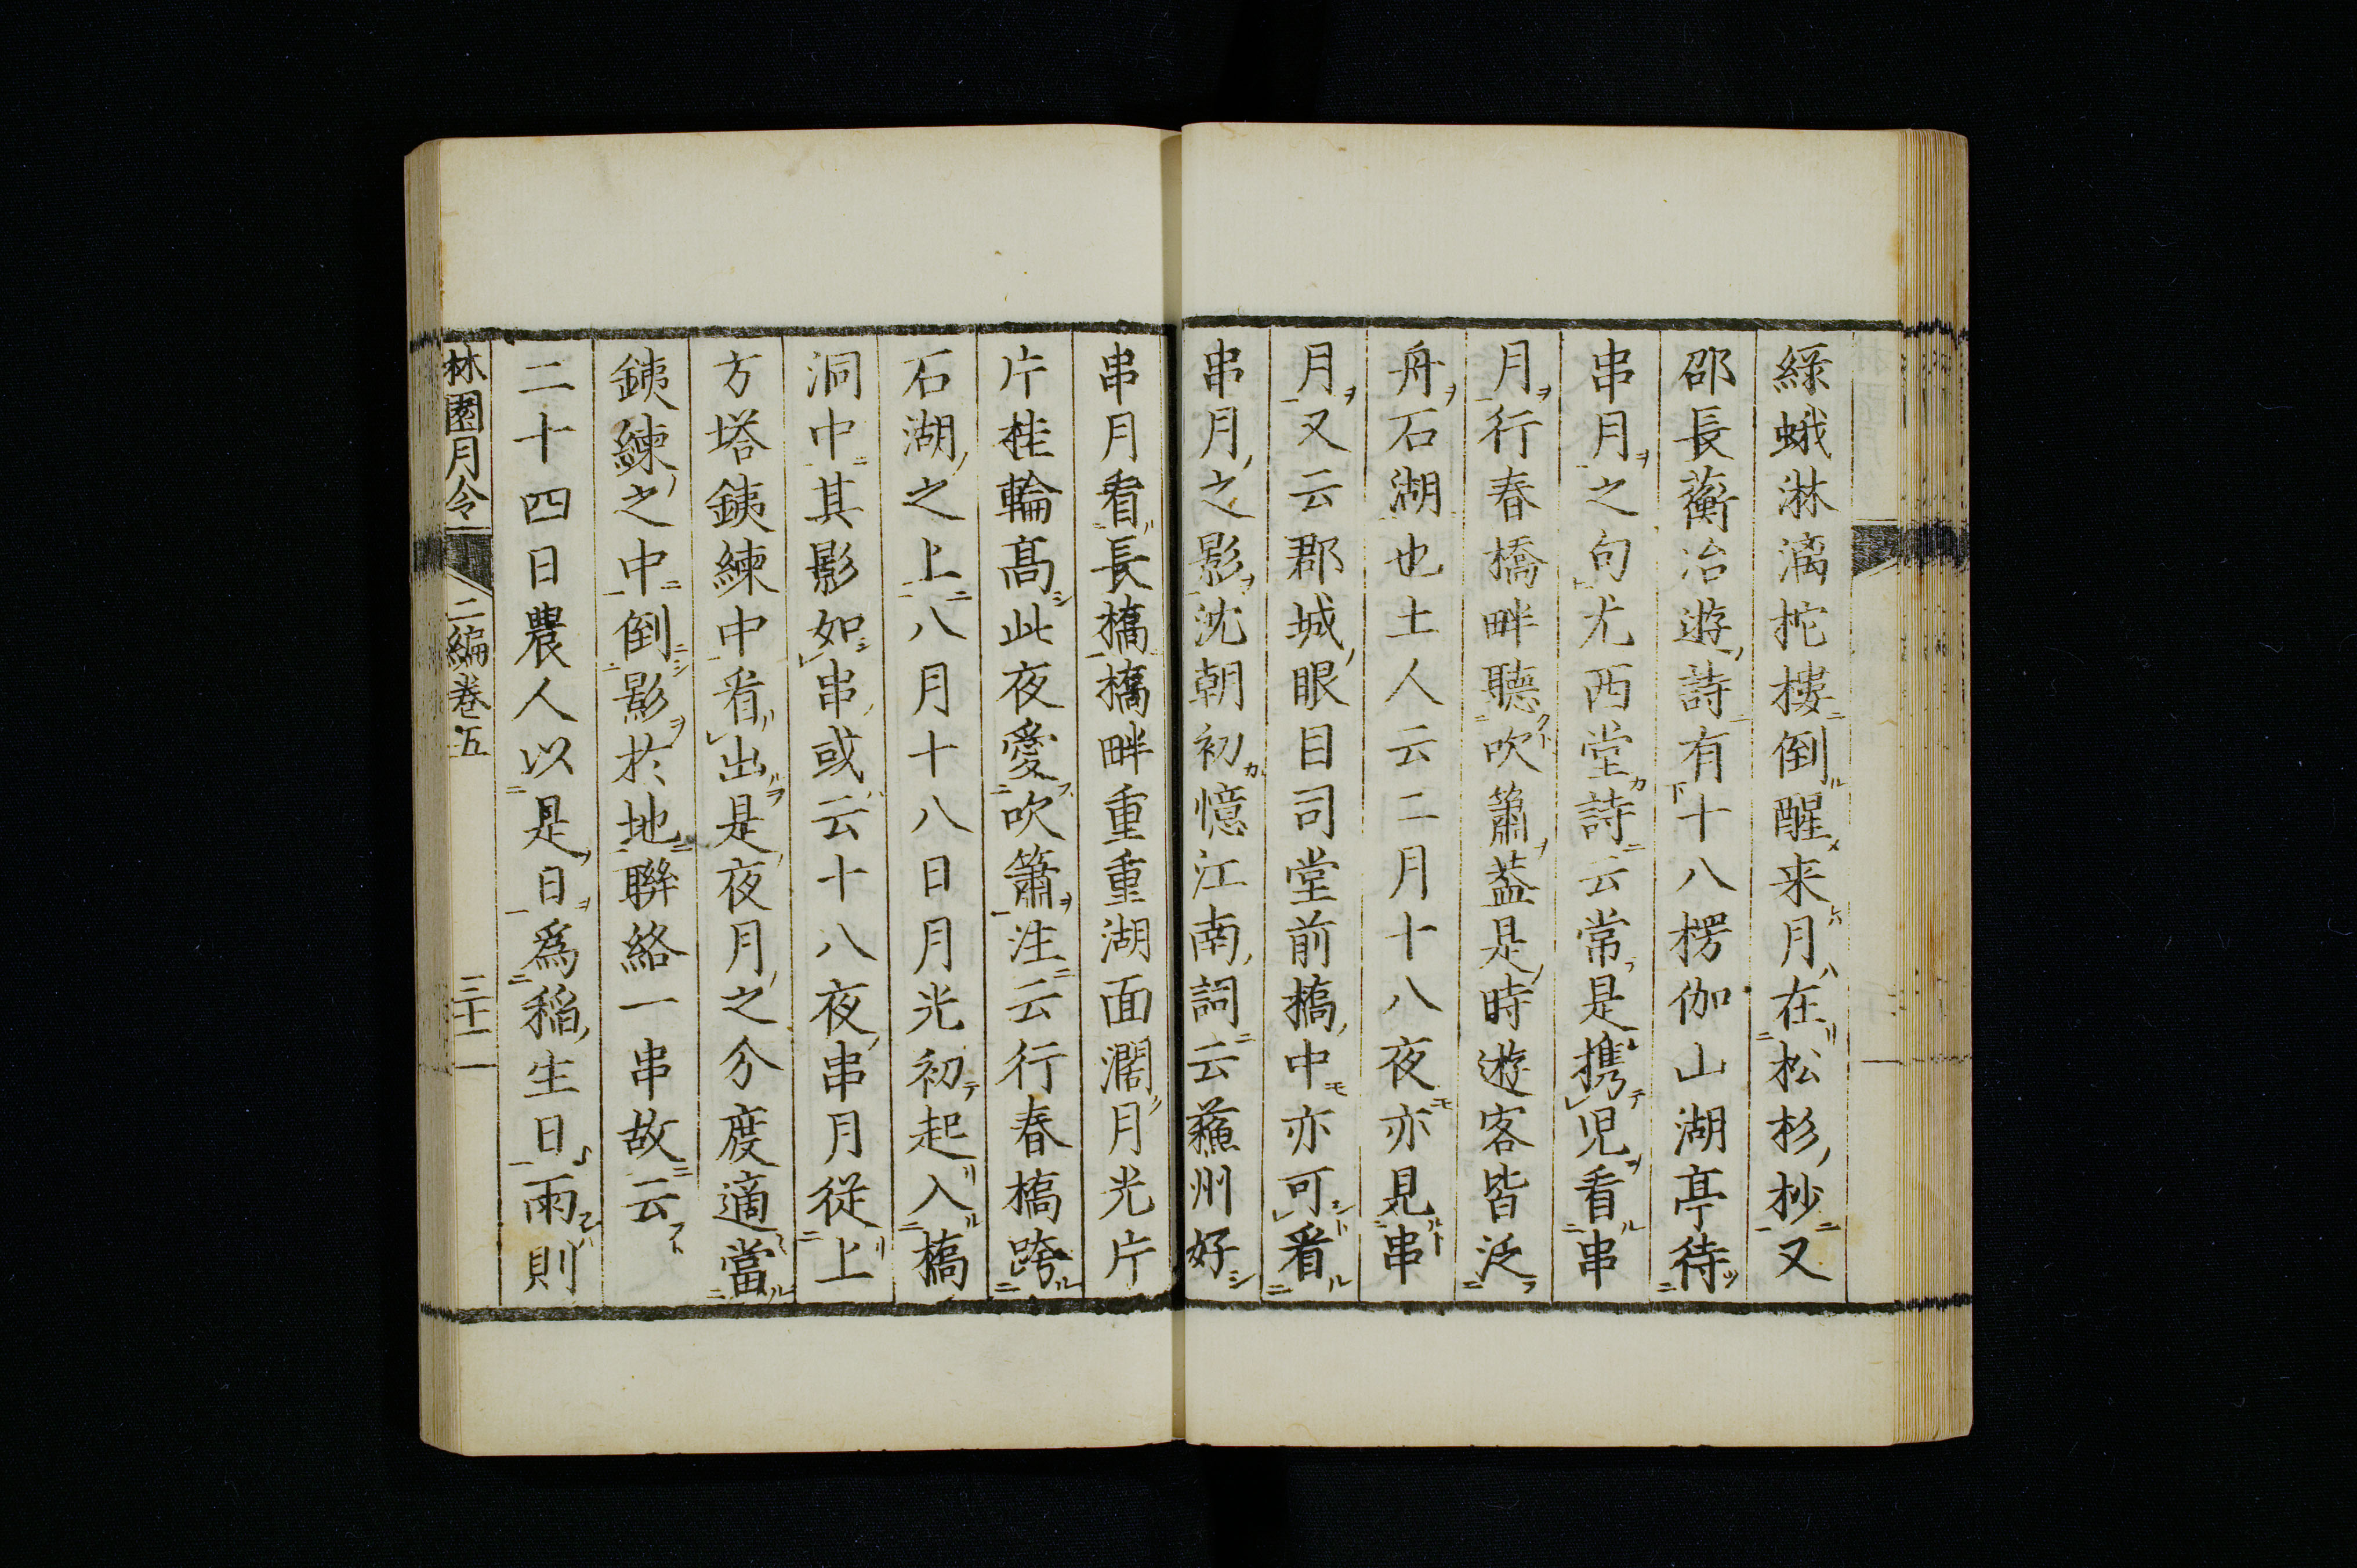 緑蛾淋漓柁樓倒醒来月在松杉杪又
邵長蘅冶遊詩有十八楞伽山湖亭待
串月之句尤西堂詩云常是携児看串
月行春橋畔聽吹簫葢是時遊客皆泛
舟石湖也土人云二月十八夜亦見串
月又云郡城眼目司堂前橋中亦可看
串月之影沈朝初憶江南詞云蘓州好
串月看長橋橋畔重重湖面濶月光片
片桂輪髙此夜愛吹簫注云行春橋跨
石湖之上八月十八日月光初起入橋
洞中其影如串或云十八夜串月從上
方塔銕練中看出是夜月之分度適當
銕練之中倒影於地聯絡一串故云
二十四日農人以是日爲稲生日雨則
林園月令
二編卷五
三十二